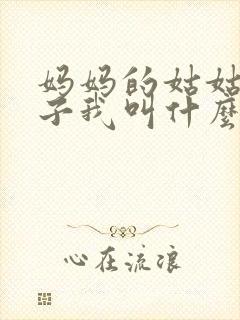 妈妈的姑姑
子我叫什麽
心在流浪